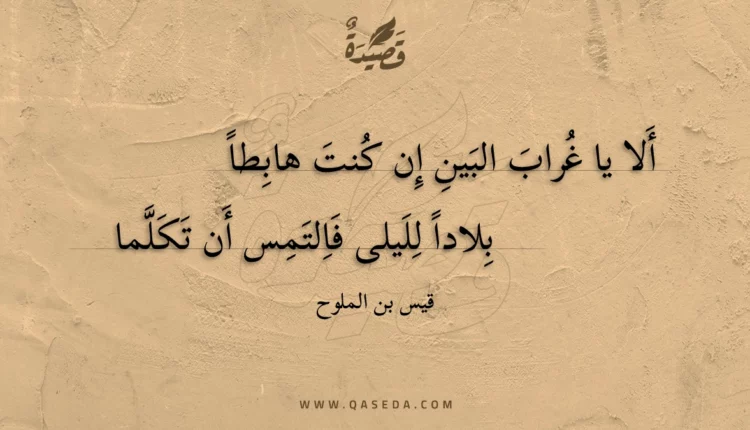 قَصِيدَةٌ
أَلا يا غُرابَ البَينِ إِن كُنتَ هابِطاً
بِلاداً لِلَيلى فَاِلتَمِس أَن تَكَلَّما
قيس بن الملوح
WWW.QASEDA.COM